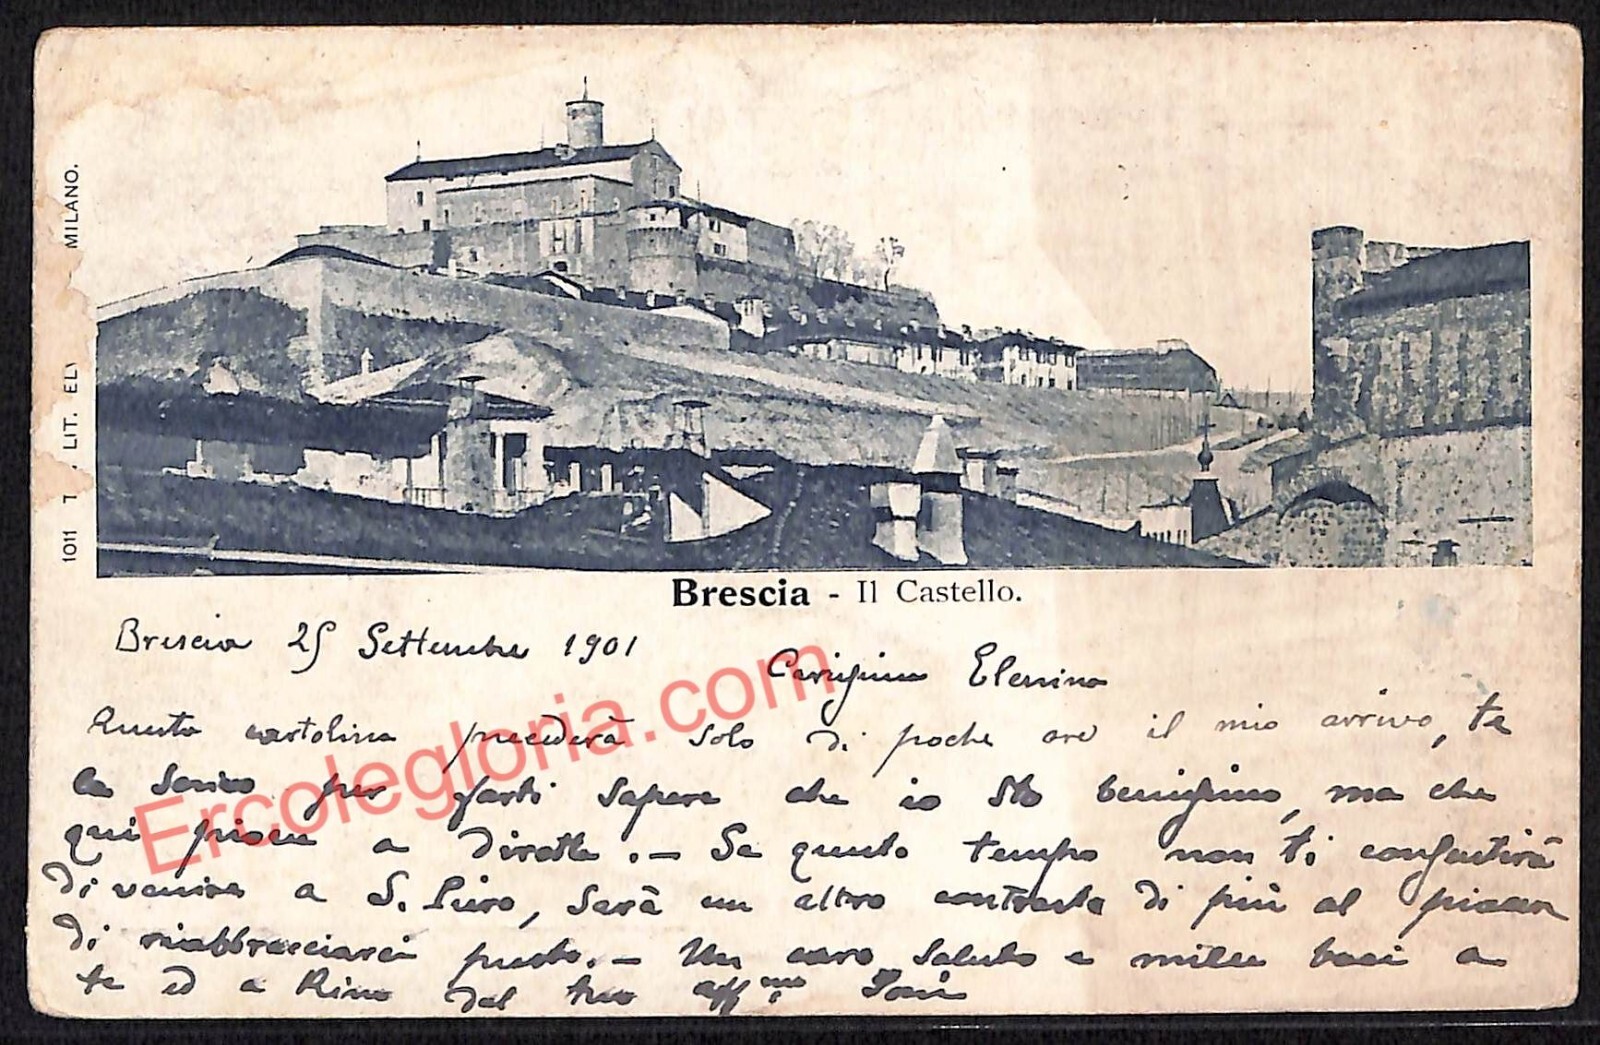 MILANO.
LIT.
1011
Brescia - Il Castello.
Brescia 25 Settembre 1901
Carissima Elenina
Questa cartolina precederà solo di poche ore il mio arrivo, te
la scrivo per farti sapere che io sto benissimo, ma che
qui piove a dirotta. - Se questo tempo non ti confortirà
di venire a S. Piero, sarà un altro contrasto di più al piacere
di riabbracciarci presto. - Un caro saluto e mille baci a
te ed a Rino dal tuo aff.mo
Ercolegloria.com